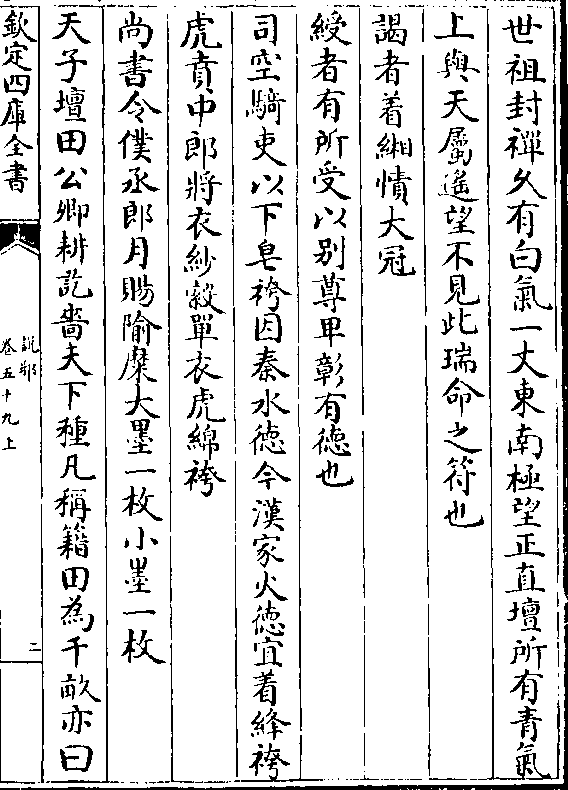 世祖封禪乆有白氣一丈東南極望正直壇所有青氣
上與天屬遙望不見此瑞命之符也
謁者着緗幘大冠
綬者有所受以别尊卑彰有徳也
司空騎吏以下皂袴因秦水徳今漢家火徳宜着絳袴
虎賁中郎將衣紗縠單衣虎綿袴
尚書令僕丞郎月賜隃糜大墨一枚小墨一枚
天子壇田公卿耕訖嗇夫下種凡稱籍田為千畝亦曰
欽定四庫全書
說郛
卷五十九上
二